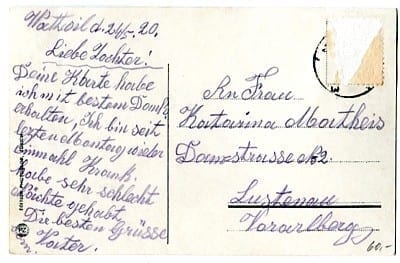 Wattwil d. 24/5. 20.
Liebe Tochter!
Deine Karte habe
ich mit bestem Dank
erhalten, Ich bin seit
letzten Montag wieder
einmahl Krank,
habe sehr schlecht
gehabt,
Die besten Grüsse
Vater.
An Frau
Katarina Matheis
Damstrasse № 2
Lustenau
Vorarlberg
60.-